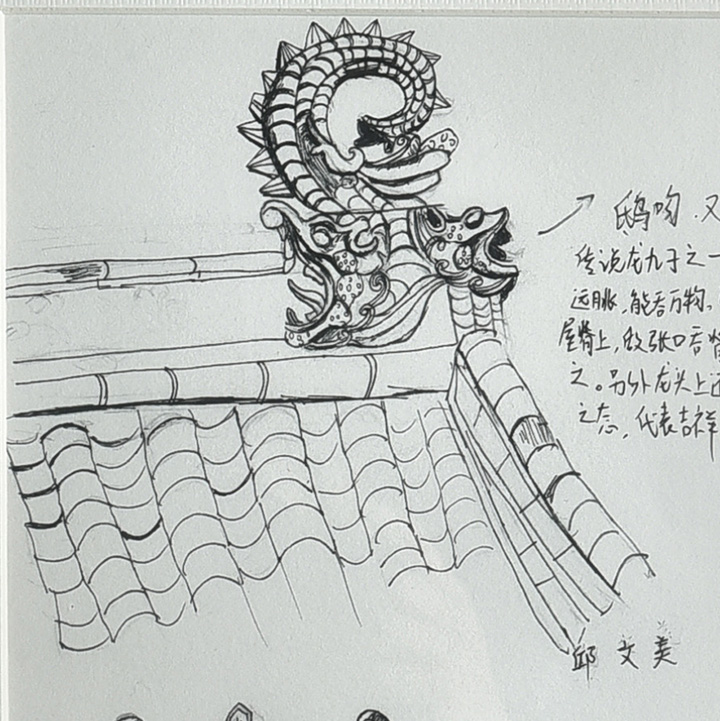 鸱吻.又
传说龙九子之一
远眺,能吞万物.
屋脊上,做张口吞脊
之。另外龙头上还
之态,代表吉祥
邱文美